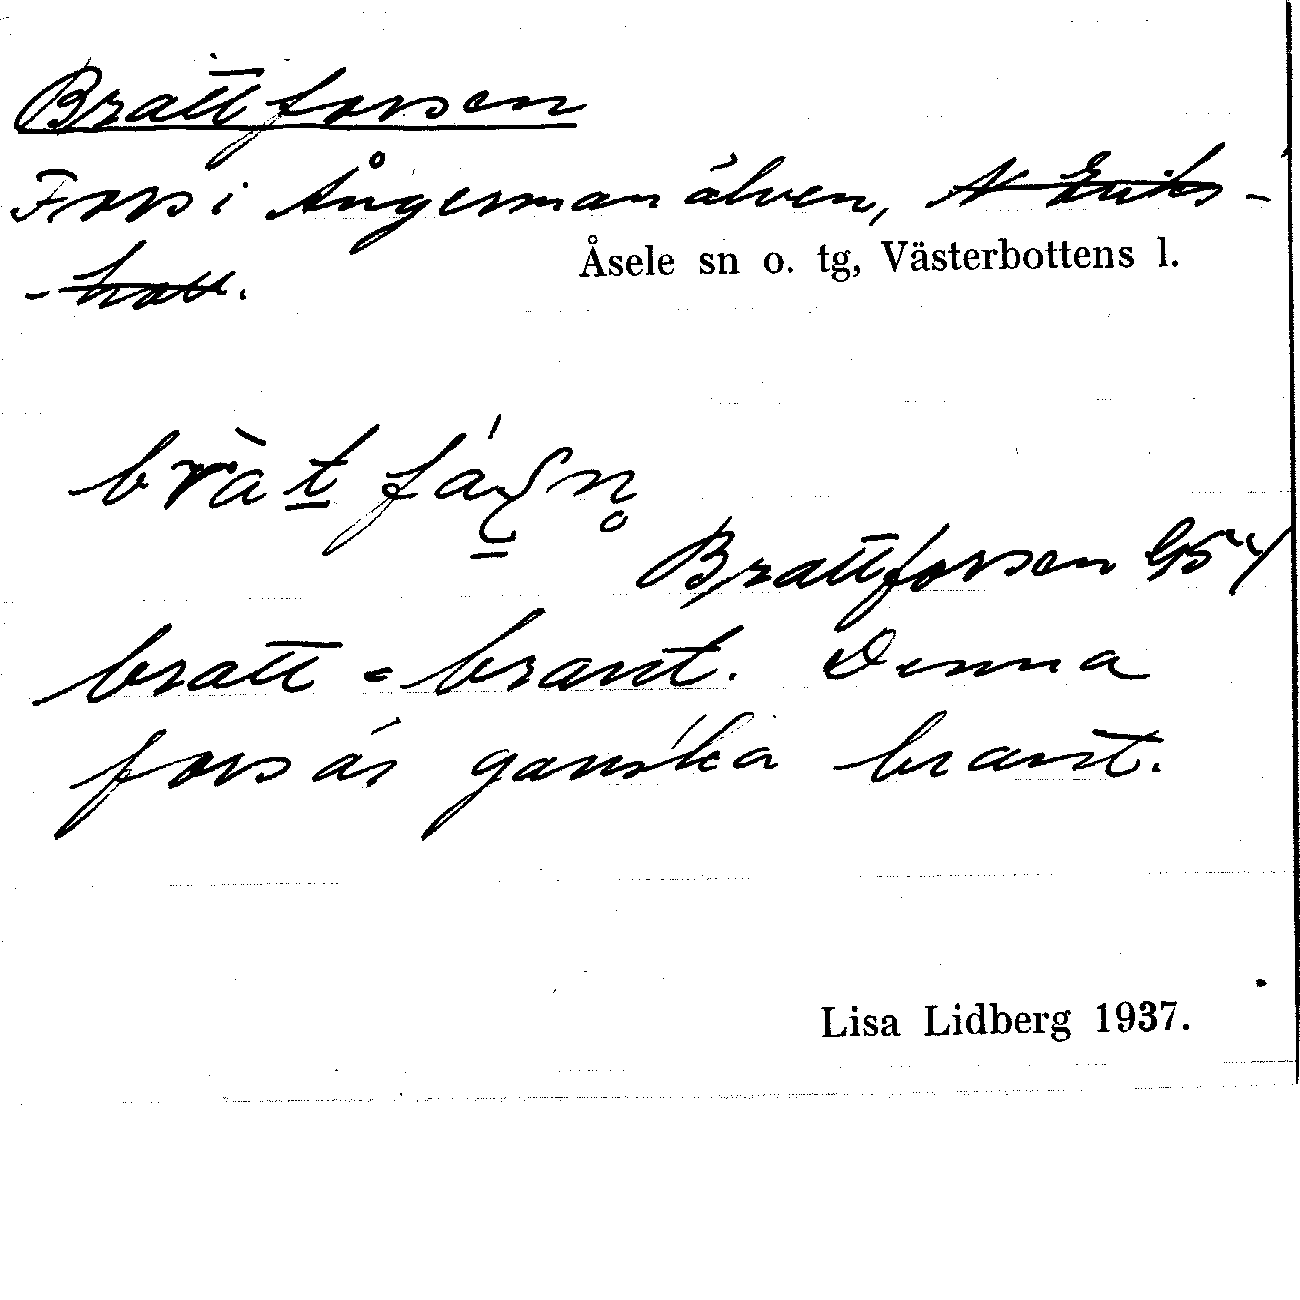 Brattforsen
Fors i Ångermanälven, N Eriks-
-hall.
Åsele sn o. tg, Västerbottens l.
bràt fáʂn̥
Brattforsen G5 4
bratt = brant. Denna
fors är ganska brant.
Lisa Lidberg 1937.